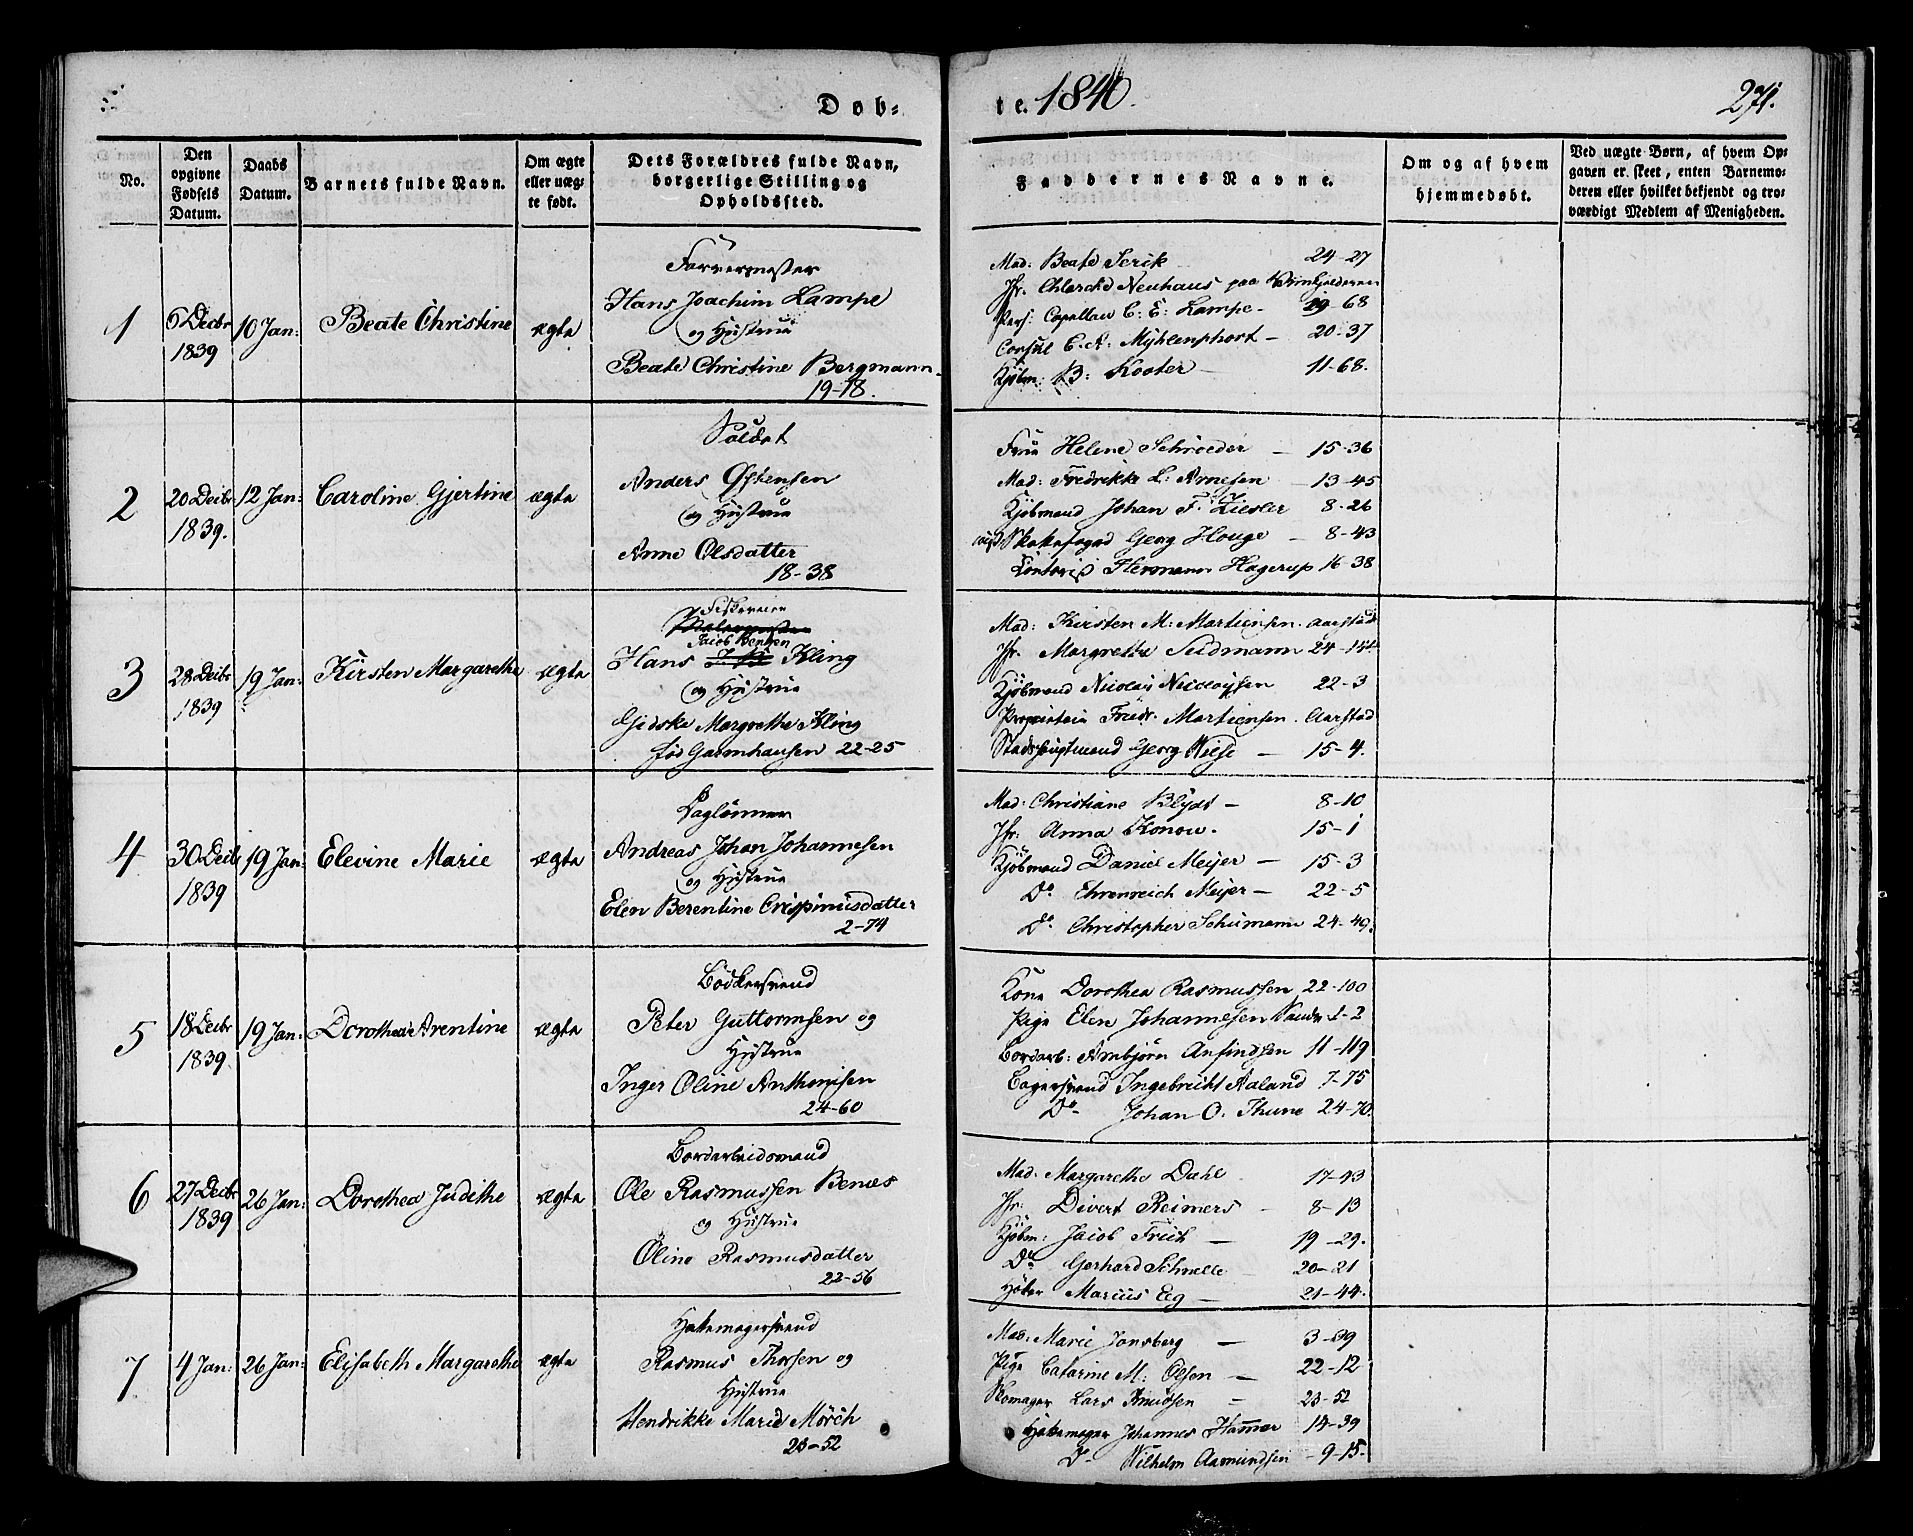 Døb=
te. 1840.
271.
No.
Den opgivne Fødsels Datum.
Daabs Datum.
Barnets fulde Navn.
Om ægte eller uægte født.
Dets Forældres fulde Navn, borgerlige Stilling og Opholdssted.
Faddernes Navne.
Om og af hvem hjemmedøbt.
Ved uægte Børn, af hvem Opgaven er skeet, enten Barnemoderen eller hvilket bekjendt og troværdigt Medlem af Menigheden.
1
6 Decbr 1839
10 Jan:
Beate Christine
ægte
Farvermester
Hans Joachim Lampe
og Hustrue
Beate Christine Bergmann
19-18.
Mad: Beate Irik 24-27
Jfr. Neuhaus paa
Pers: Capellan C: E: Lampe - 19-68
Consul E. A: Myhlenphort - 20-37
Kjøbm: B: Kooter - 11-68.
2
20 Decbr 1839.
12 Jan:
Caroline Gjertine
ægte
Soldat
Anders Østensen
og Hustrue
Anne Olsdatter
18-38
Frue Helene Schrøeder - 15-36
Mad: Fredrikke L: Arnesen - 13-45
Kjøbmand Johan F. Ziesler 8-26
Georg Houge - 8-43
Contorist Hermann Hagerup 16-38
3
28 Decbr 1839
19 Jan:
Kirsten Margarethe
ægte
Jacob Benzen
Hans Kling
og Hustrue
Gidske Margrethe Kling
fød Garmhausen 22-25
Mad: Kirsten M: Martiensen. Aarstad
Jfr. Margrethe Sudmann 24-154
Kjøbmand Nicolai Nicolaysen 22-3
Proprietair Fridr. Martiensen. Aarstad
Stadshauptmand Georg Wiese - 15-4.
4
30 Decbr 1839
19 Jan:
Elevine Marie
ægte
Daglønner
Andreas Johan Johannesen
og Hustrue
Elen Berentine Crispinusdatter
2-74
Mad: Christiane Blydt - 8-10
Jfr: Anna Konow. 15-1
Kjøbmand Daniel Meyer - 15-3
Do Ehrenreich Meyer - 22-5
Do Christopher Schumann 24-49.
5
18 Decbr 1839.
19 Jan:
Dorothea Arentine
ægte
Bødkersvend
Peter Guttormsen og
Hustrue
Inger Oline Anthonisen
24-60
Kone Dorothea Rasmussen 22-100
Pige Elen Johannesen 1-2
Bordarb: Arnbjørn Anfindsen 11-119
Bagersvend Ingebricht Aaland 7-75
Do Johan O. Thune 24-70.
6
27 Decbr 1839
26 Jan:
Dorothea Judithe
ægte
Bordarbeidsmand
Ole Rasmussen Benæs
og Hustrue
Oline Rasmusdatter
22-56
Mad: Margarethe Dahl 17-43
Jfr: Divert Reimers - 8-13
Kjøbm: Jacob Frich - 19-29.
Do Gerhard Schnelle 20-21
Høker Marcus Eeg - 21-44.
7
4 Jan:
26 Jan:
Elisabeth Margarethe
ægte
Hattemagersvend
Rasmus Thorsen og
Hustrue
Hendrikke Marie Mörch
23-52
Mad: Marie Jansberg - 3-39
Pige Catarine M: Olsen - 22-12
Skomager Lars Knudsen - 23-52
Hattemager Johannes Hammer 14-39
Do Wilhelm Aamundsen - 9-15.